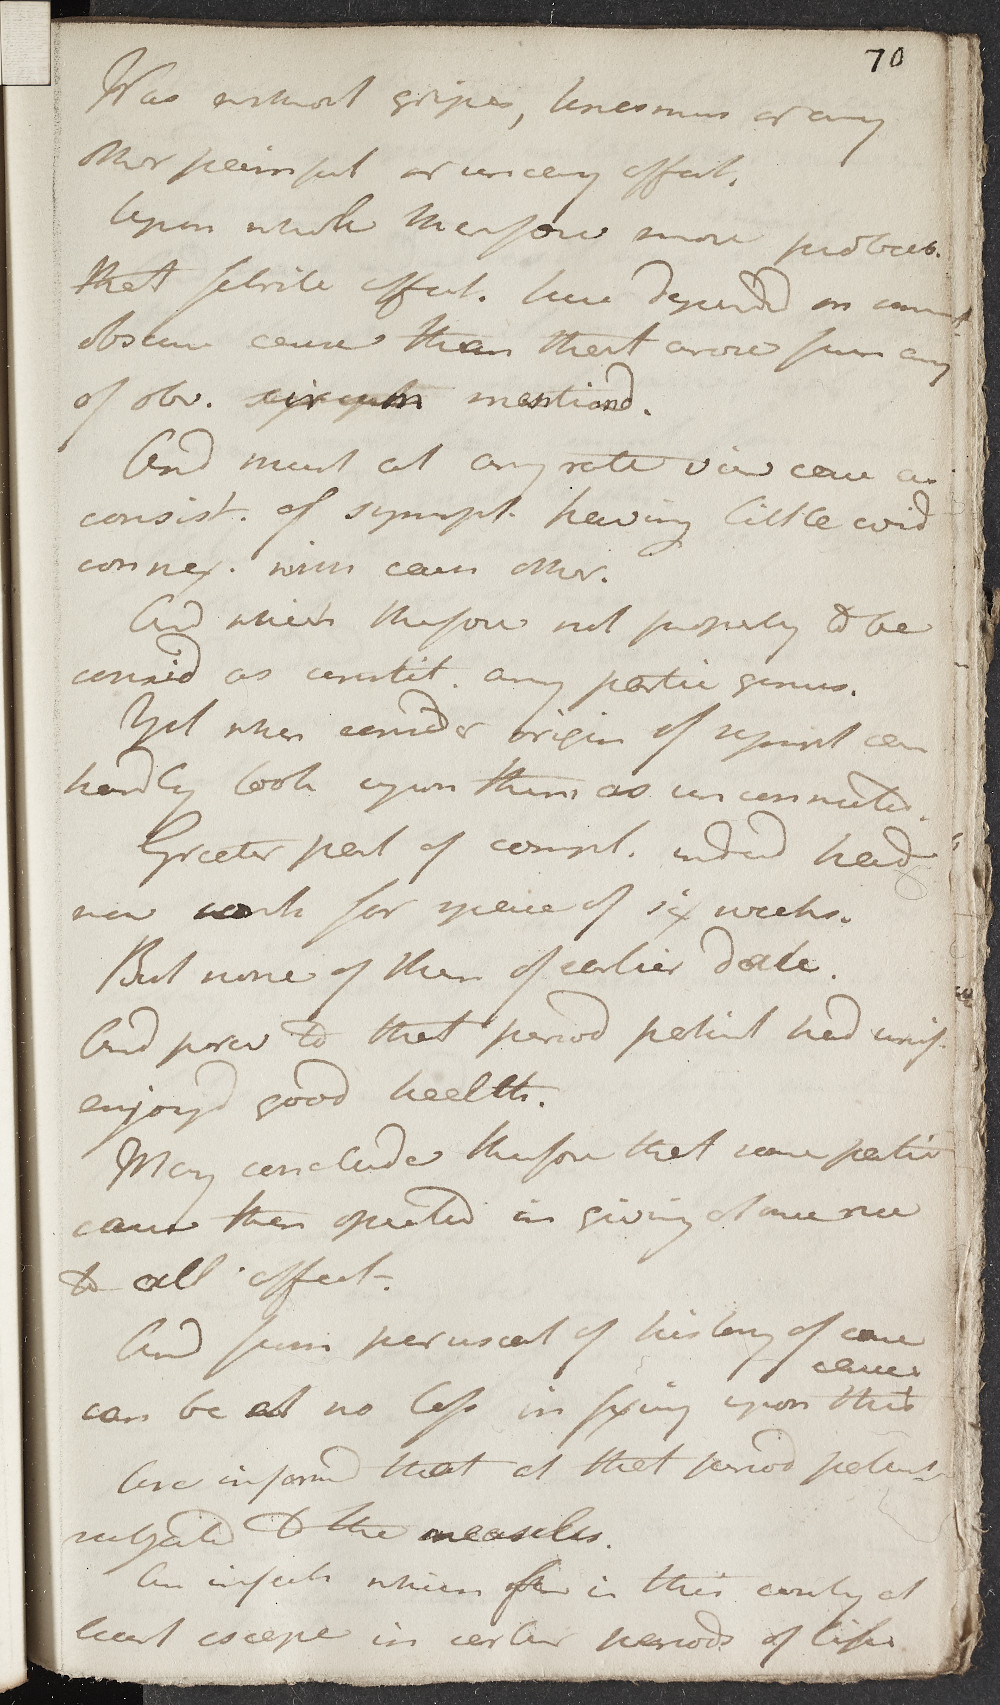 70
Was without gripes, tenesmus or any
other painful or uneasy effect.
Upon whole therefore more probab.
that febrile affect. here depended on some
obscure cause than that arose from any
of obv. mentiond.
And must at any rate view case as
consist. of sympt. having little evid
connex. with each other.
And which therefore not properly to be
considd as constit. any partic genus.
Yet when consider origin of sympt can
hardly look upon them as unconnected.
Greater part of compl. indeed had
now for space of six weeks.
But none of them of earlier date.
And prev to that period patient had unif.
enjoyd good health.
May conclude therefore that some partic
cause then operated in giving
to all affect.
And from perusal of history of case
can be at no loss in fixing upon this
cause
Are informd that at that period patient
subjected to the measles.
An infect. which few in this country at
least escape in earlier periods of life